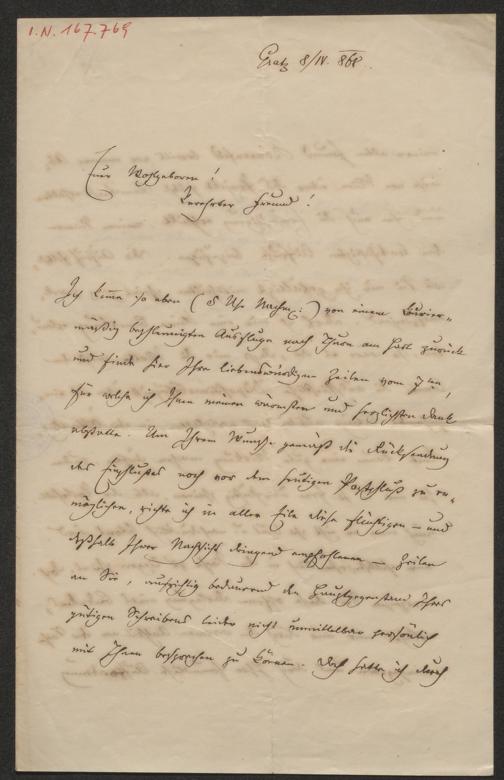 I.N. 167.769
Gratz 8/IV. 868.
Euer Wohlgeboren!
Verehrter Freund!
Ich komme so eben (5 Uhr Nachm:) von einem Courier-
mäßig beschleunigten Ausfluge nach Thurn am Hart zurück
und finde hier Ihre liebenswürdigen Zeilen vom 7ten,
für welche ich Ihnen meinen wärmsten und herzlichsten Dank
abstatte. Um Ihrem Wunsche gemäß die Rücksendung
des Einschlußes noch vor dem heutigen Postschluß zu er-
möglichen, richte ich in aller Eile diese flüchtigen – und
deßhalb Ihrer Nachsicht dringend empfohlenen – Zeilen
an Sie, aufrichtig bedauernd den Hauptgegenstand Ihres
gütigen Schreibens leider nicht unmittelbar persönlich
mit Ihnen besprechen zu können. Doch hatte ich durch